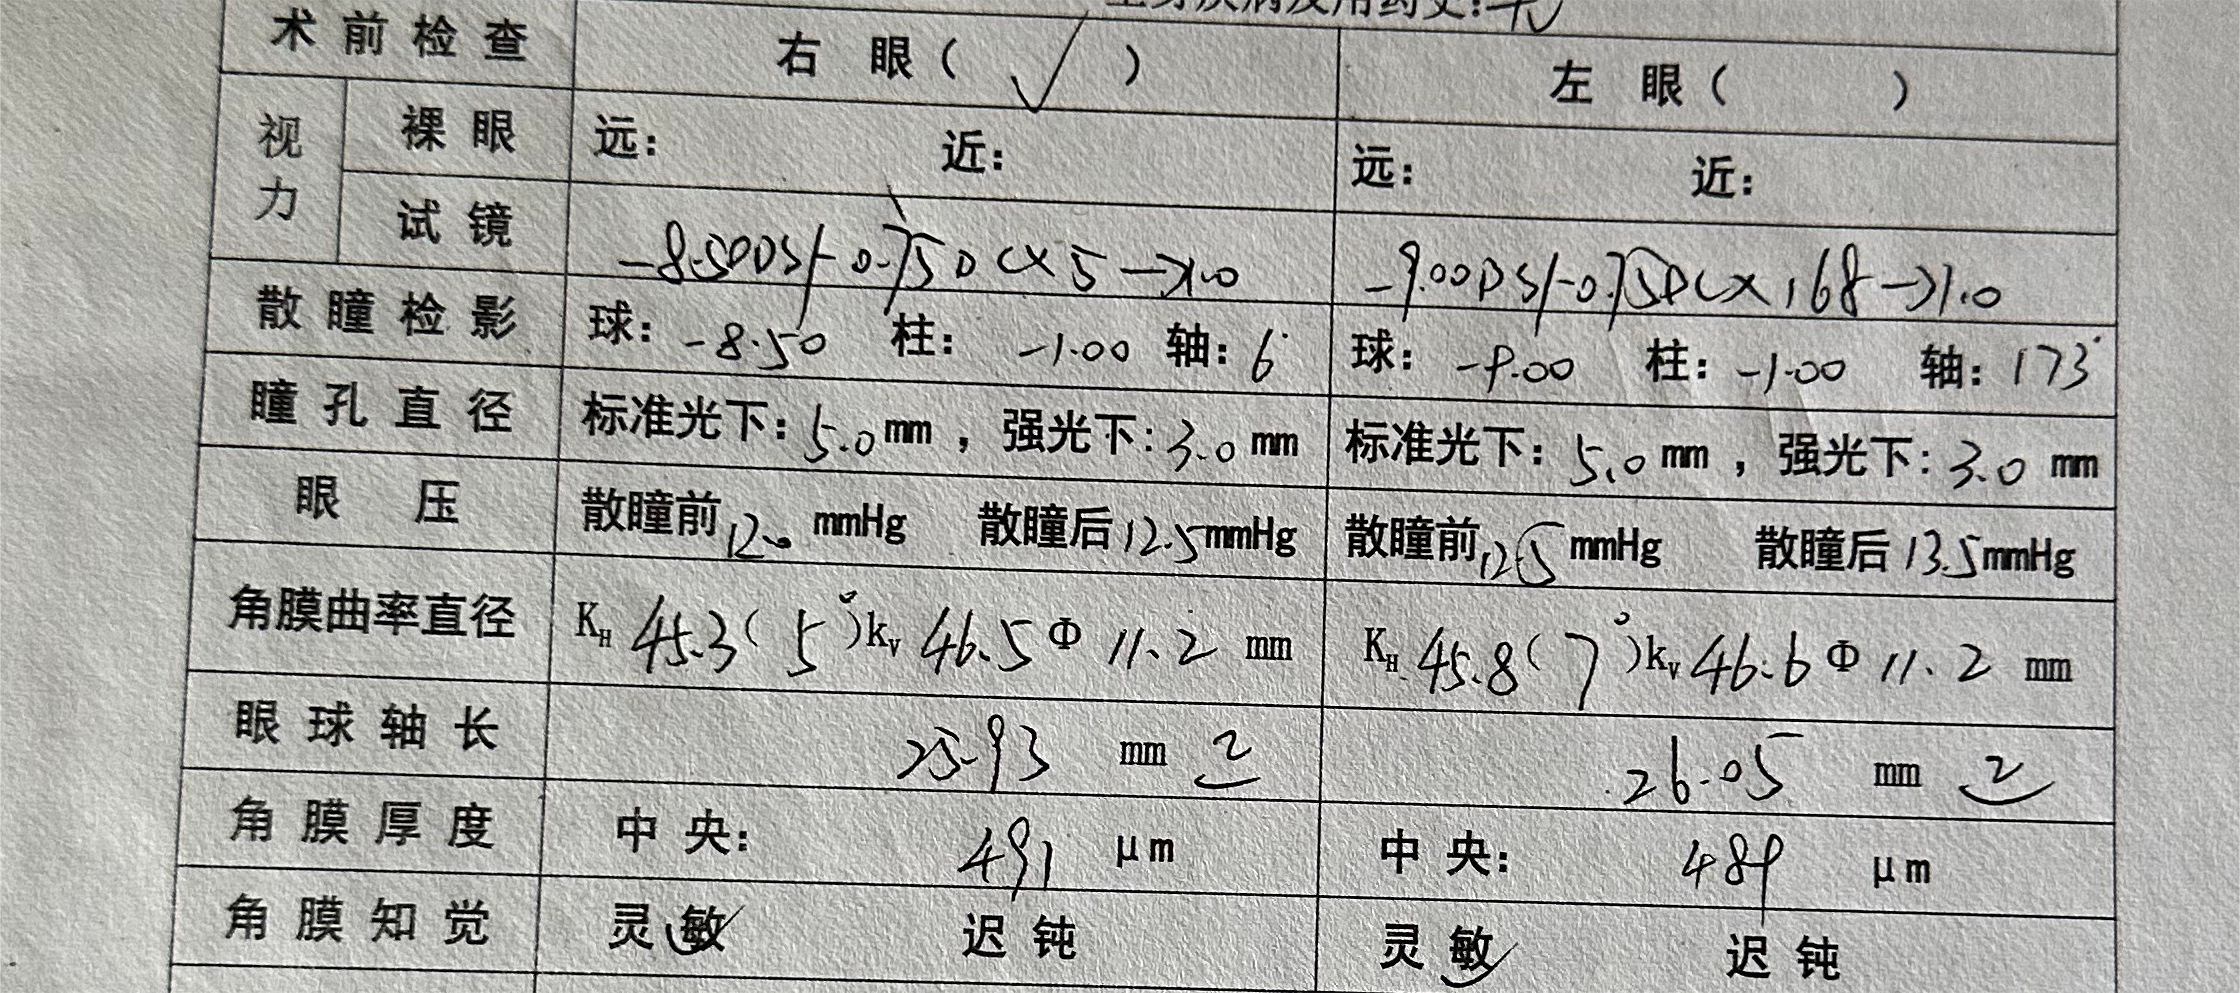 全身疾病及用药史:无
术前检查 右 眼( √ ) 左 眼( )
视力 裸眼 远: 近: 远: 近:
试镜 -8.50DS/-0.75DC×5→1.0 -9.00DS/-0.75DC×168→1.0
散瞳检影 球: -8.50 柱: -1.00 轴: 6° 球: -9.00 柱: -1.00 轴: 173°
瞳孔直径 标准光下: 5.0 mm , 强光下: 3.0 mm 标准光下: 5.0 mm , 强光下: 3.0 mm
眼压 散瞳前 12.0 mmHg 散瞳后 12.5 mmHg 散瞳前 12.5 mmHg 散瞳后 13.5 mmHg
角膜曲率直径 KH 45.3 ( 5° ) kv 46.5 Φ 11.2 mm KH 45.8 ( 7° ) kv 46.6 Φ 11.2 mm
眼球轴长 25.93 mm 2 26.05 mm 2
角膜厚度 中央: 491 μm 中央: 489 μm
角膜知觉 灵敏√ 迟钝 灵敏√ 迟钝